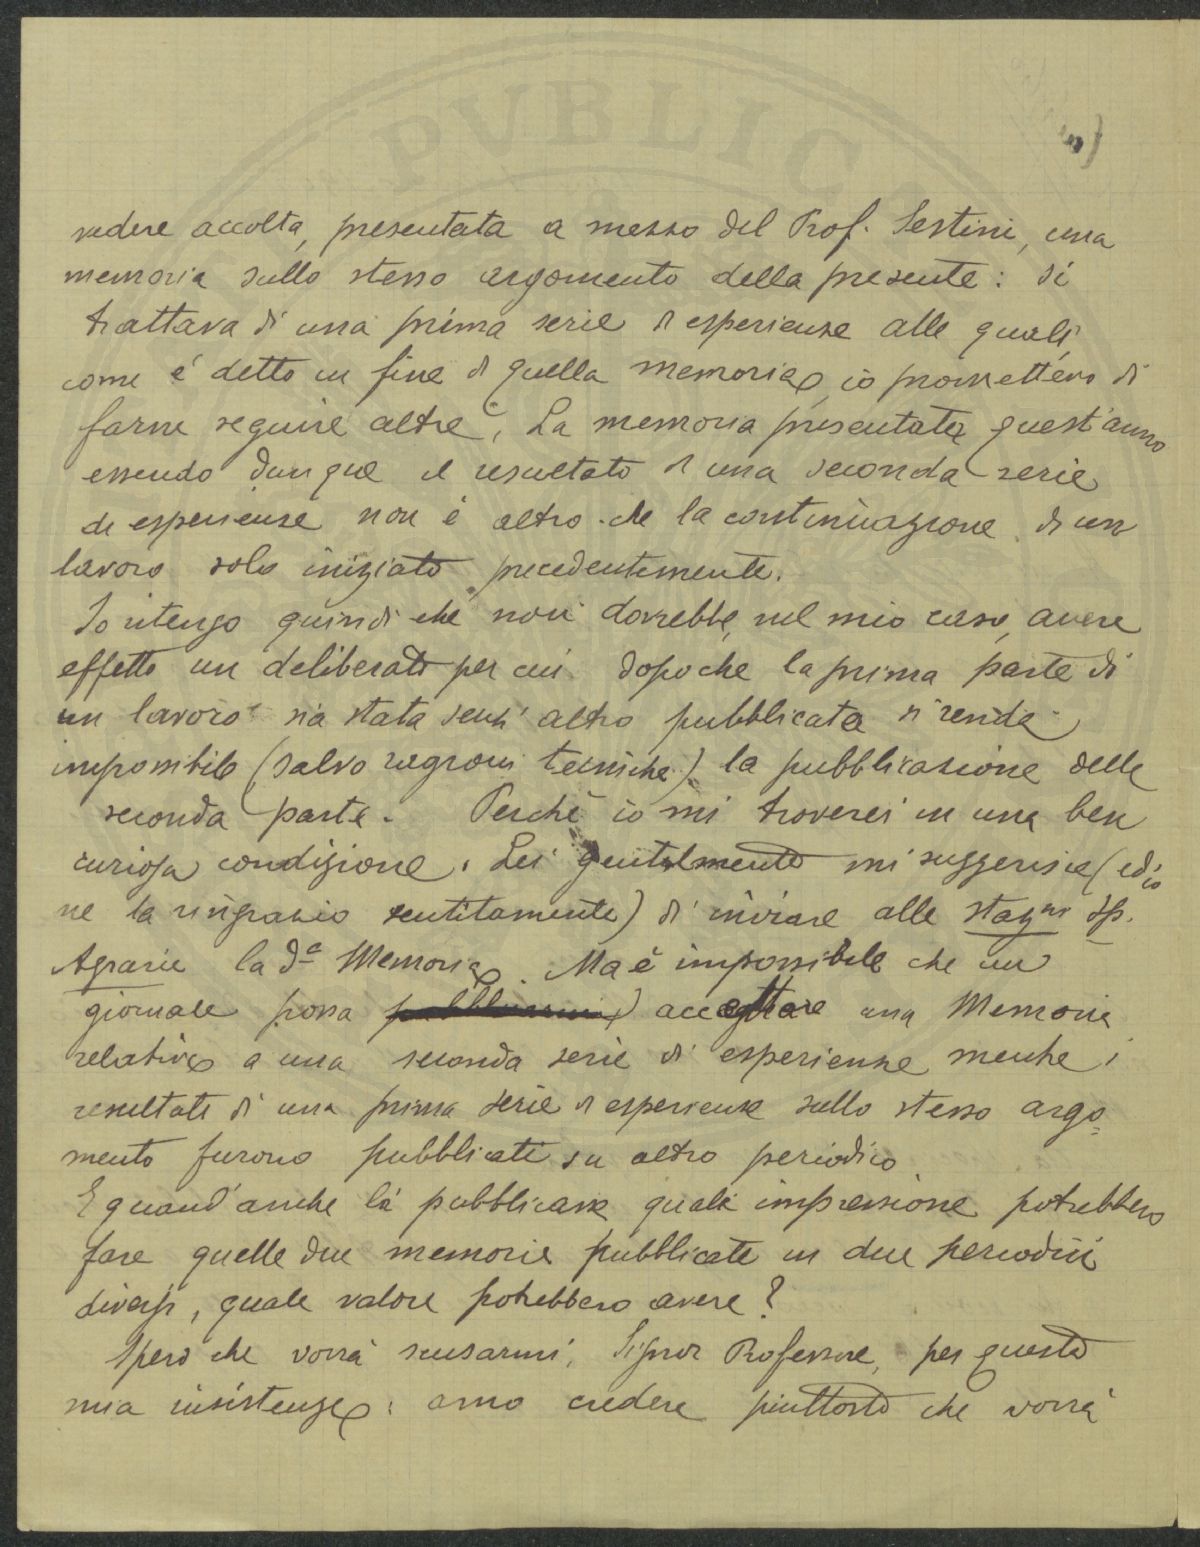 PVBLIC
vedere accolta, presentata a mezzo del Prof. Sestini, una
memoria sullo stesso argomento della presente: si
trattava di una prima serie di esperienze alle quali,
come è detto in fine di quella memoria, io promettevo di
farne seguire altre. La memoria presentata quest'anno
essendo dunque il resultato di una seconda serie
di esperienze non è altro che la continuazione di un
lavoro solo iniziato precedentemente.
Io ritengo quindi che non dovrebbe, nel mio caso, avere
effetto un deliberato per cui dopo che la prima parte di
un lavoro sia stata senz'altro pubblicata si renda
impossibile (salvo ragioni tecniche) la pubblicazione della
seconda parte. Perchè io mi troverei in una ben
curiosa condizione. Lei gentilmente mi suggerisce (ed io
ne la ringrazio sentitamente) di inviare alle Stazni Sp.
Agrarie la da Memoria. Ma è impossibile che un
giornale possa accettare una Memoria
relativa a una seconda serie di esperienze mentre i
resultati di una prima serie di esperienze sullo stesso argo=
mento furono pubblicati su altro periodico.
E quand'anche la pubblicasse quale impressione potrebbero
fare quelle due memorie pubblicate in due periodici
diversi, quale valore potrebbero avere?
Spero che vorrà scusarmi, Signor Professore, per questa
mia insistenza: amo credere piuttosto che vorrà